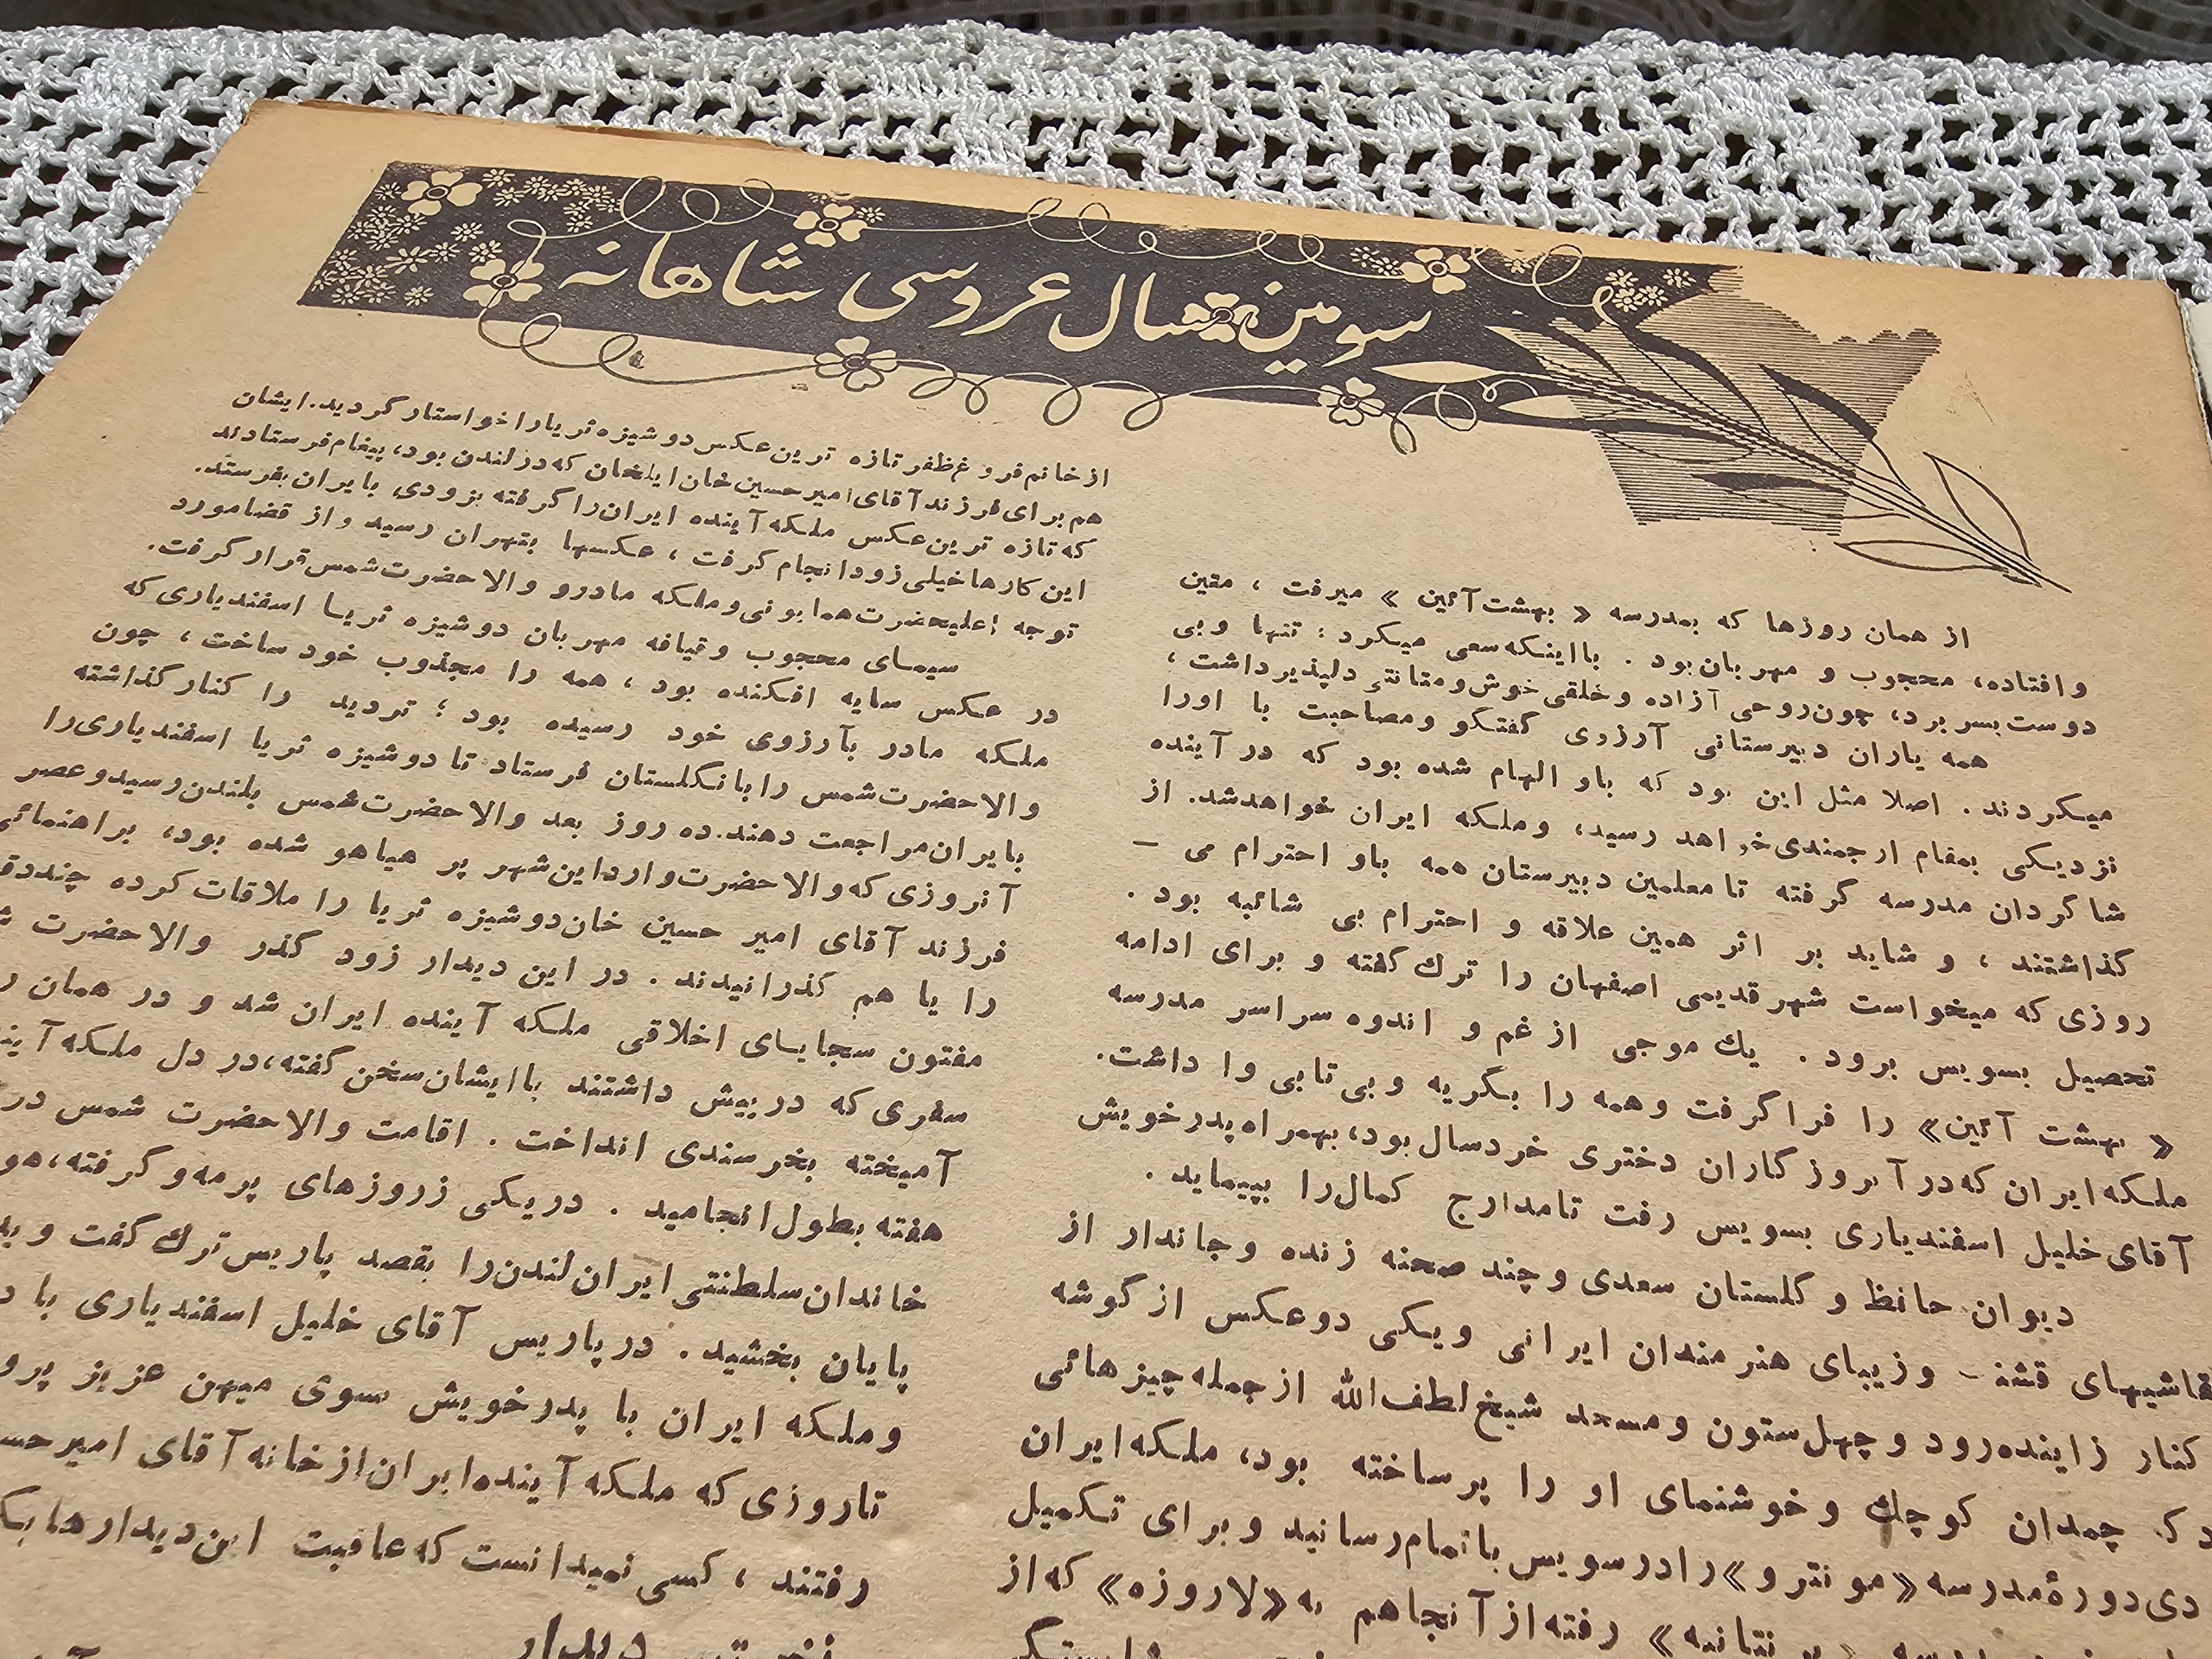 سومین سال عروسی شاهانه
از همان روزها که بمدرسه « بهشت‌آئین » میرفت ، متین
و افتاده، محجوب و مهربان بود . بااینکه سعی میکرد : تنها و بی
دوست بسر برد، چون روحی آزاده و خلقی خوش و متانتی دلپذیر داشت ،
همه یاران دبیرستانی آرزوی گفتگو و مصاحبت با اورا
میکردند . اصلا مثل این بود که باو الهام شده بود که در آینده
نزدیکی بمقام ارجمندی خواهد رسید، و ملکه ایران خواهدشد. از
شاگردان مدرسه گرفته تا معلمین دبیرستان همه باو احترام می –
گذاشتند ، و شاید بر اثر همین علاقه و احترام بی شائبه بود .
روزی که میخواست شهر قدیمی اصفهان را ترك گفته و برای ادامه
تحصیل بسویس برود . یك موجی از غم و اندوه سراسر مدرسه
« بهشت آئین» را فرا گرفت و همه را بگریه و بی‌تابی وا داشت.
ملکه ایران که در آنروز گاران دختری خردسال بود، بهمراه پدرخویش
آقای خلیل اسفندیاری بسویس رفت تامدارج کمال‌را بپیماید .
دیوان حافظ و گلستان سعدی و چند صحنه زنده و جاندار از
قاشیهای وزیبای هنرمندان ایرانی ویکی دوعکس از گوشه
کنار زاینده‌رود و چهل‌ستون و مسجد شیخ لطف‌الله از جمله چیزهائی
چمدان کوچك و خوشنمای او را پر ساخته بود، ملکه ایران
دی دورهٔ مدرسه «مونترو» رادرسویس باتمام‌رسانید و برای تکمیل
رفته از آنجاهم به «لاروزه» که از
از خانم فروغ ظفر تازه ترین عکس دوشیزه ثریارا خواستار گردید. ایشان
هم برای فرزند آقای امیرحسین خان ایلخان که در لندن بود، پیغام فرستادند
که تازه ترین عکس ملکه آینده ایران‌را گرفته بزودی بایران بفرستد.
این کارها خیلی زودانجام گرفت ، عکسها بتهران رسید و از قضامورد
توجه اعلیحضرت همایونی و ملکه مادر و والاحضرت شمس قرار گرفت.
سیمای محجوب و قیافه مهربان دوشیزه ثریا اسفندیاری که
در عکس سایه افکنده بود ، همه را مجذوب خود ساخت ، چون
ملکه مادر بآرزوی خود رسیده بود ؛ تردید را کنار گذاشته
والاحضرت شمس را بانگلستان فرستاد تا دوشیزه ثریا اسفندیاری‌را
بایران مراجعت دهند. ده روز بعد والاحضرت شمس بلندن رسید و عصر
آنروزی که والاحضرت وارد این شهر پر هیاهو شده بود، براهنمائی
فرزند آقای امیر حسین خان دوشیزه ثریا را ملاقات کرده
را با هم گذرانیدند . در این دیدار زود گذر والاحضرت
مفتون سجایای اخلاقی ملکه آینده ایران شد و در همان
سفری که درپیش داشتند باایشان سخن گفته، در دل ملکه
آمیخته بخرسندی انداخت . اقامت والاحضرت شمس در
هفته بطول انجامید . دریکی زروزهای پر مه و گرفته،
خاندان سلطنتی ایران لندن‌را بقصد پاریس ترك گفت و
پایان بخشید . در پاریس آقای خلیل اسفندیاری با
و ملکه ایران با پدر خویش سوی میهن عزیز
تاروزی که ملکه آینده ایران از خانه آقای
رفتند ، کسی نمیدانست که عاقبت این دیدارها